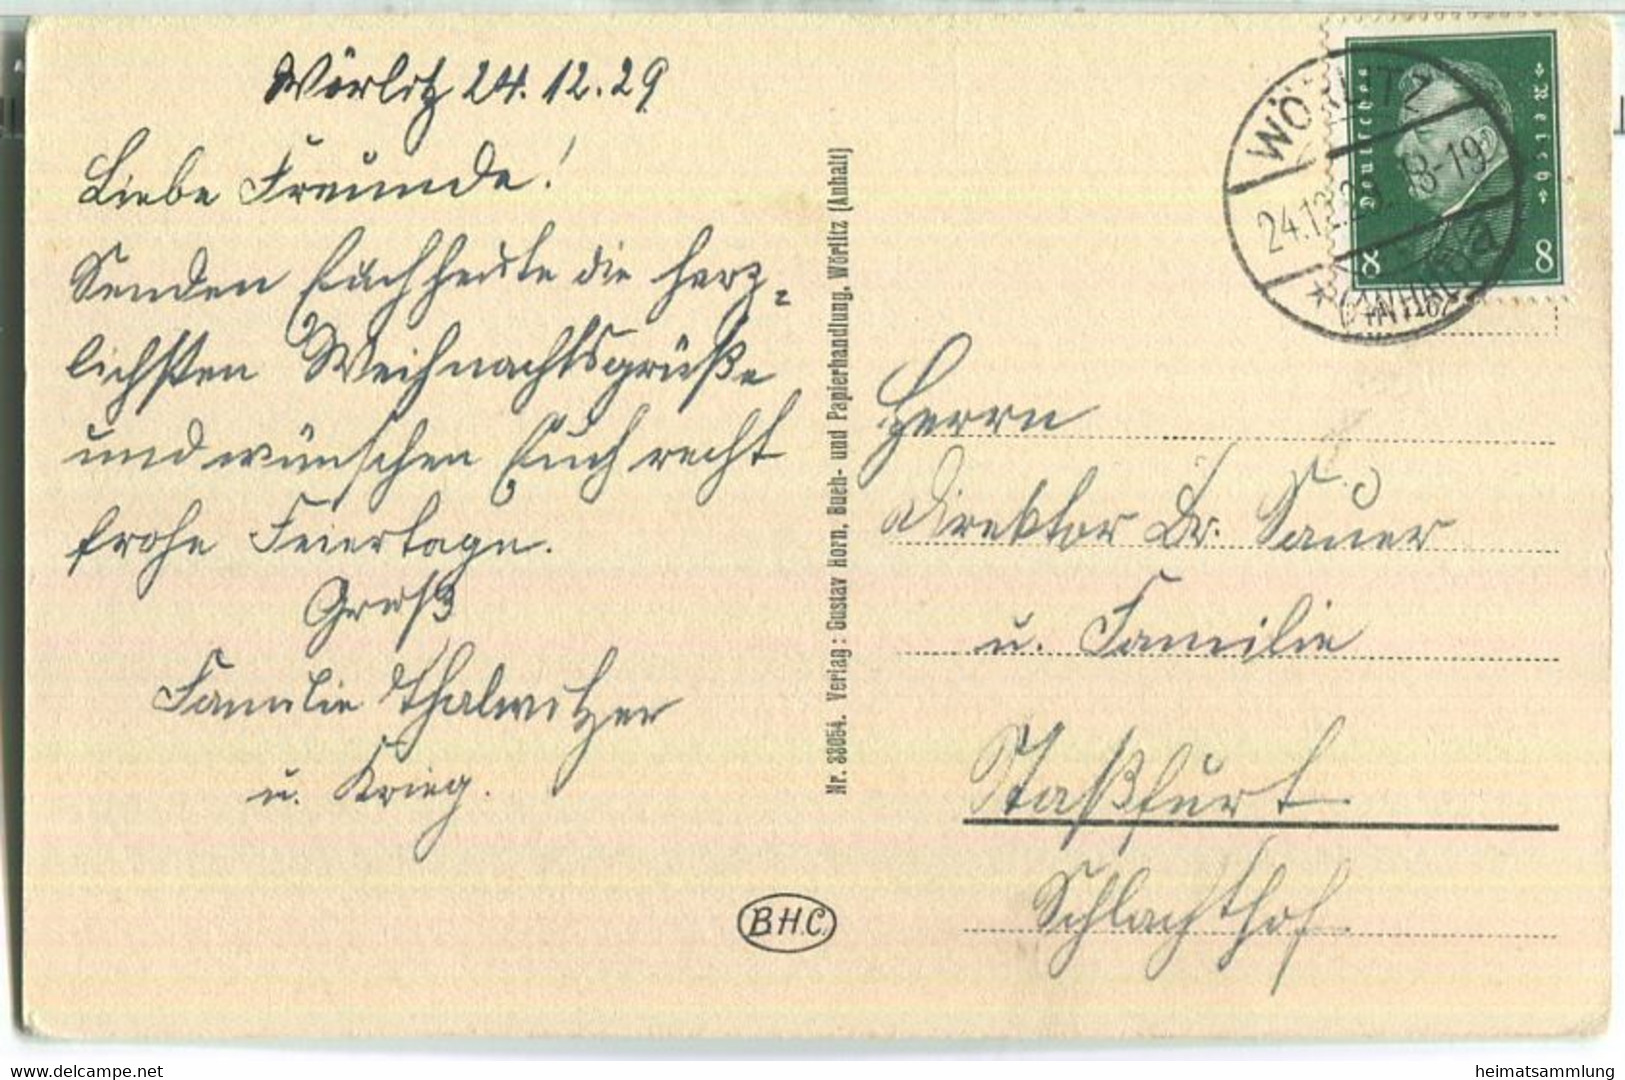 Wörlitz 24.12.29
Liebe Freunde!
Senden Euch heute die herz-
lichsten Weihnachtsgrüße
und wünschen Euch recht
frohe Feiertage.
Gruß
Familie Thalwitzer
u. Krieg.
Nr. 33054. Verlag: Gustav Horn, Buch- und Papierhandlung, Wörlitz (Anhalt)
B.H.C.
Deutsches Reich
8 8
WÖRLITZ
24.12.29. 18-19
* (ANHALT) a
Herrn
Direktor Dr. Sauer
u. Familie
Staßfurt
Schlachthof.
heimatsammlung
delcampe.net